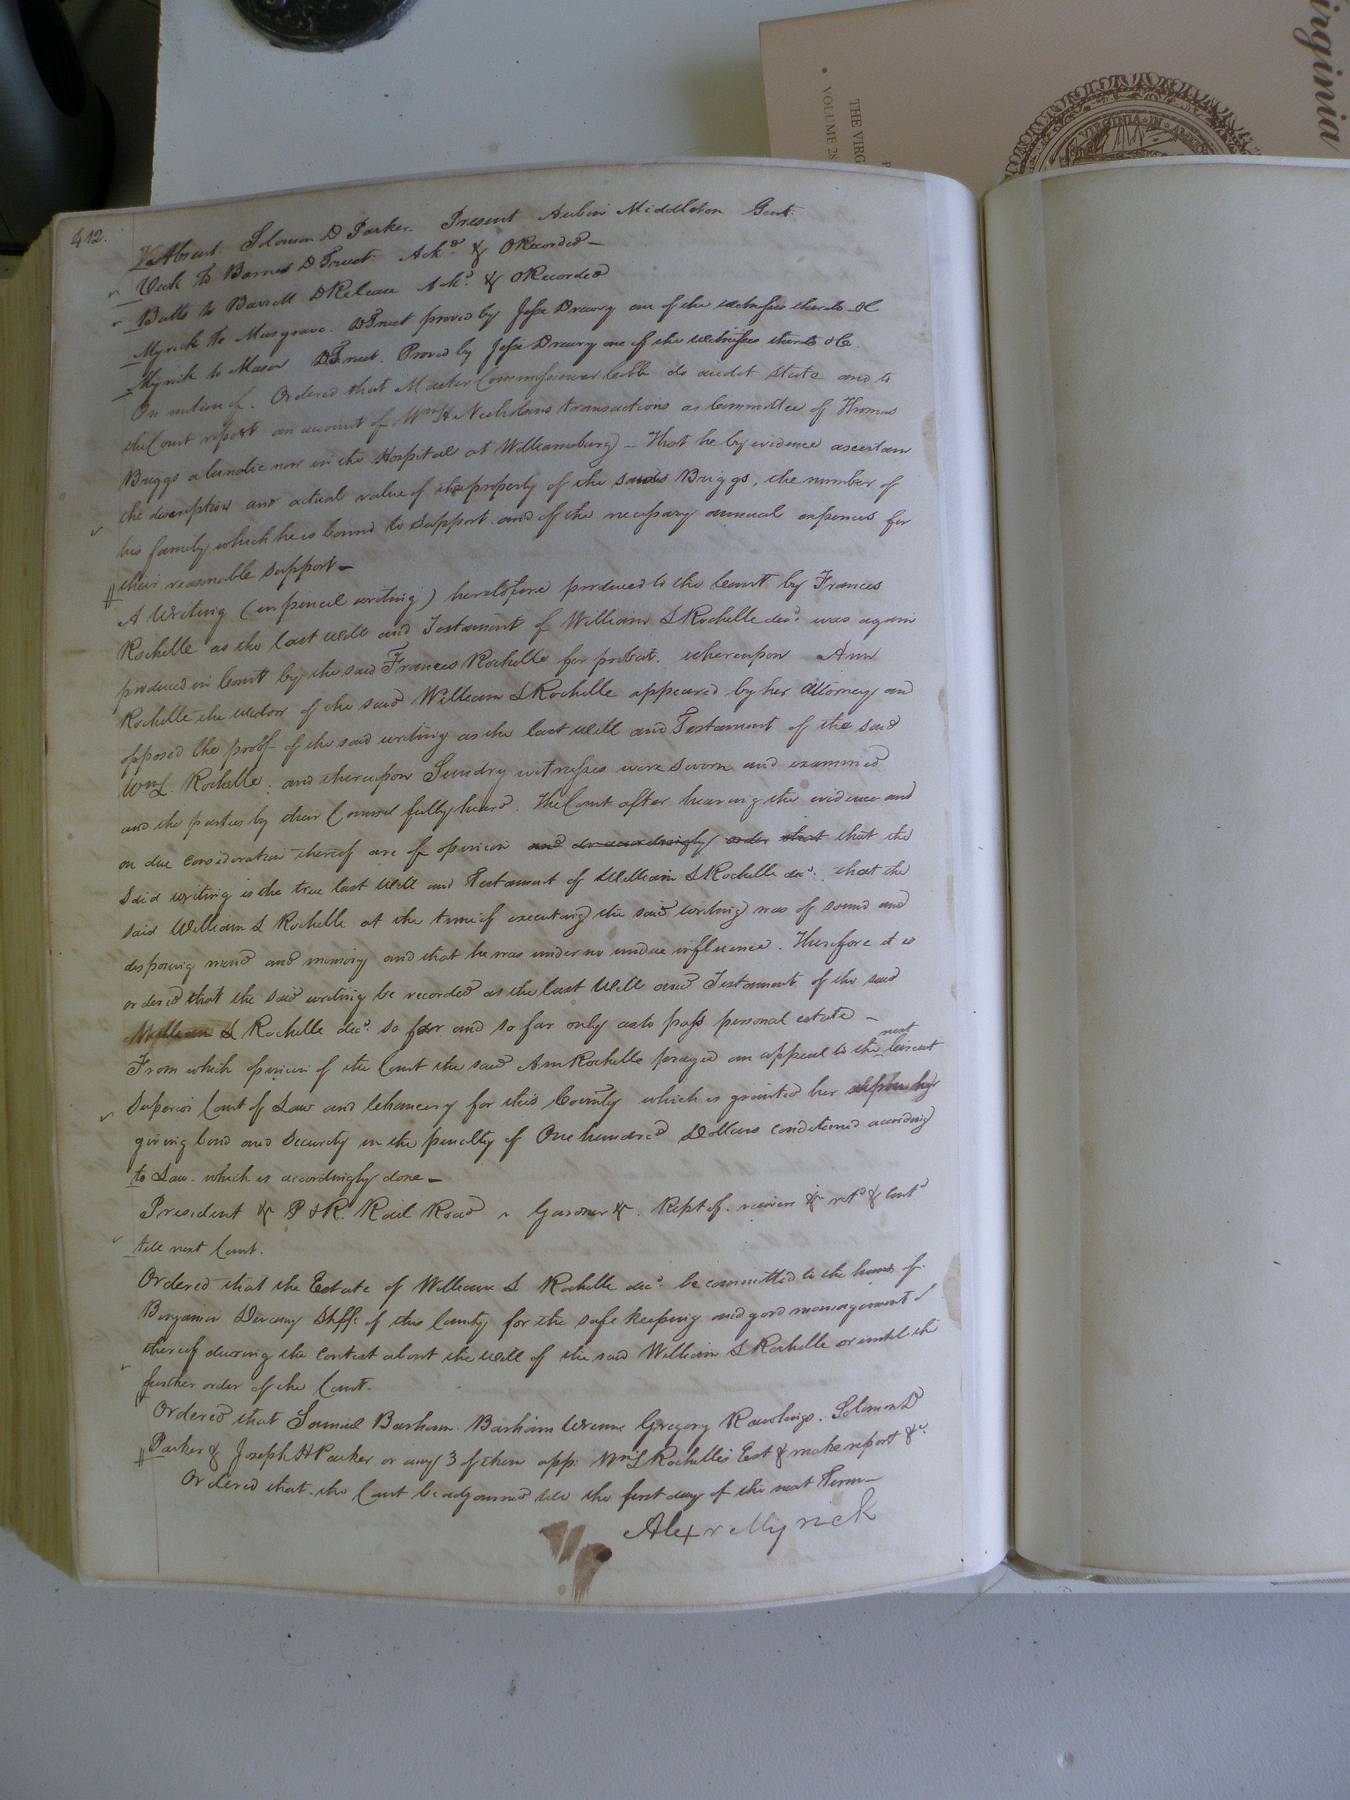 irginia
THE VIRG
VOLUME 28
VIRGINIA IN
412.
Absent. Solomon D Parker. Present Aubin Middleton Gent.
to Barnes D Trust. Ackd & ORecorded
Butts to Barrett DRelease Ackd & ORecorded
Myrick to Musgrave. DTrust proved by Jesse Drewry one of the witnesses thereto &C
Myrick to Mason DTrust. Proved by Jesse Drewry one of the witnesses thereto &C.
On motion of. Ordered that Master Commissioner Cobb do audit State and to
the Court report an account of Wm H Nicholsons transactions as Committee of Thomas
Briggs a lunatic now in the Hospital at Williamsburg – that he by evidence ascertain
the description and actual value of the property of the said Briggs, the number of
his family which he is bound to support and of the necessary annual expences for
their reasonable support –
A Writing (in pencil writing) heretofore produced to the Court by Frances
Rochelle as the last will and Testament of William L Rochelle decd. was again
produced in Court by the said Frances Rochelle for probat. whereupon Ann
Rochelle the widow of the said William L Rochelle appeared by her Attorney and
opposed the proof of the said writing as the last will and Testament of the said
Wm L. Rochelle; and thereupon Sundry witnesses were sworn and examined
and the parties by their Counsel fully heard. The Court after hearing the evidence and
on due consideration thereof are of opinion and do accordingly order that that the
said writing is the true last will and Testament of William L Rochelle decd. that the
said William L Rochelle at the time of executing the said writing was of sound and
disposing mind and memory and that he was under no undue influence. Therefore it is
ordered that the said writing be recorded as the last will and Testament of the said
William L Rochelle decd. so far and so far only as to pass personal estate –
From which opinion of the Court the said Ann Rochelle prayed an appeal to the next Circuit
Superior Court of Law and Chancery for this County which is granted her
giving bond and Security in the penalty of One hundred Dollars conditioned according
to Law. which is accordingly done –
President & P & R. Rail Road v Gardner &. Rept of. &. retd & Contd
till next Court.
Ordered that the Estate of William L Rochelle decd. be committed to the hands of.
Benjamin Devany Shff: of this County for the safe keeping and good management
thereof during the contest about the will of the said William L Rochelle or until the
further order of the Court.
Ordered that Samuel Barham Barham Wrenn Gregory Rawlings. Solomon D
Parker & Joseph H Parker or any 3 of them app: Wm L Rochelles Est & make report &c.
Ordered that the Court be adjourned till the first day of the next Term –
Alexr Myrick